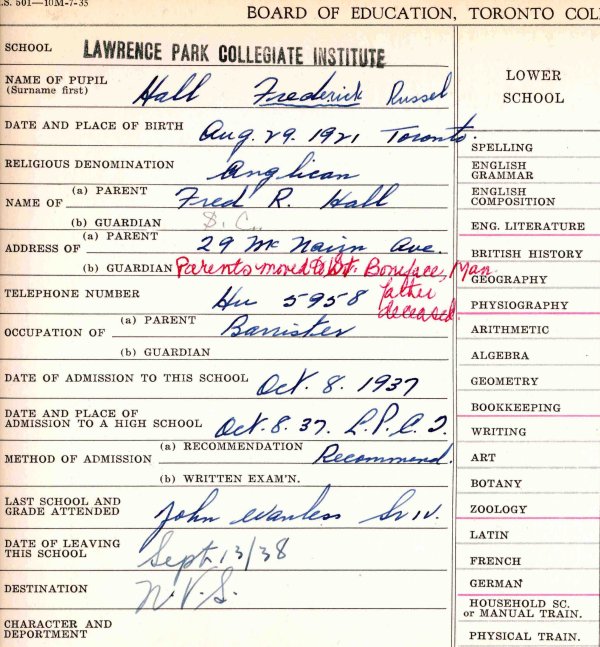 .S. 501—10M-7-35
BOARD OF EDUCATION, TORONTO COL
SCHOOL LAWRENCE PARK COLLEGIATE INSTITUTE
NAME OF PUPIL
(Surname first) Hall Frederick Russel
DATE AND PLACE OF BIRTH Aug. 29. 1921 Toronto.
RELIGIOUS DENOMINATION Anglican
NAME OF (a) PARENT Fred R. Hall
(b) GUARDIAN
ADDRESS OF (a) PARENT 29 McNairn Ave.
(b) GUARDIAN Parents moved to St. Boniface, Man
father
deceased.
TELEPHONE NUMBER Hu 5958
OCCUPATION OF (a) PARENT Barrister
(b) GUARDIAN
DATE OF ADMISSION TO THIS SCHOOL Oct. 8. 1937
DATE AND PLACE OF
ADMISSION TO A HIGH SCHOOL Oct. 8. 37. L.P.C.I.
METHOD OF ADMISSION (a) RECOMMENDATION Recommend.
(b) WRITTEN EXAM'N.
LAST SCHOOL AND
GRADE ATTENDED John Wanless Sr IV.
DATE OF LEAVING
THIS SCHOOL Sept 13/38
DESTINATION N.V.S.
CHARACTER AND
DEPORTMENT
LOWER
SCHOOL
SPELLING
ENGLISH
GRAMMAR
ENGLISH
COMPOSITION
ENG. LITERATURE
BRITISH HISTORY
GEOGRAPHY
PHYSIOGRAPHY
ARITHMETIC
ALGEBRA
GEOMETRY
BOOKKEEPING
WRITING
ART
BOTANY
ZOOLOGY
LATIN
FRENCH
GERMAN
HOUSEHOLD SC.
or MANUAL TRAIN.
PHYSICAL TRAIN.